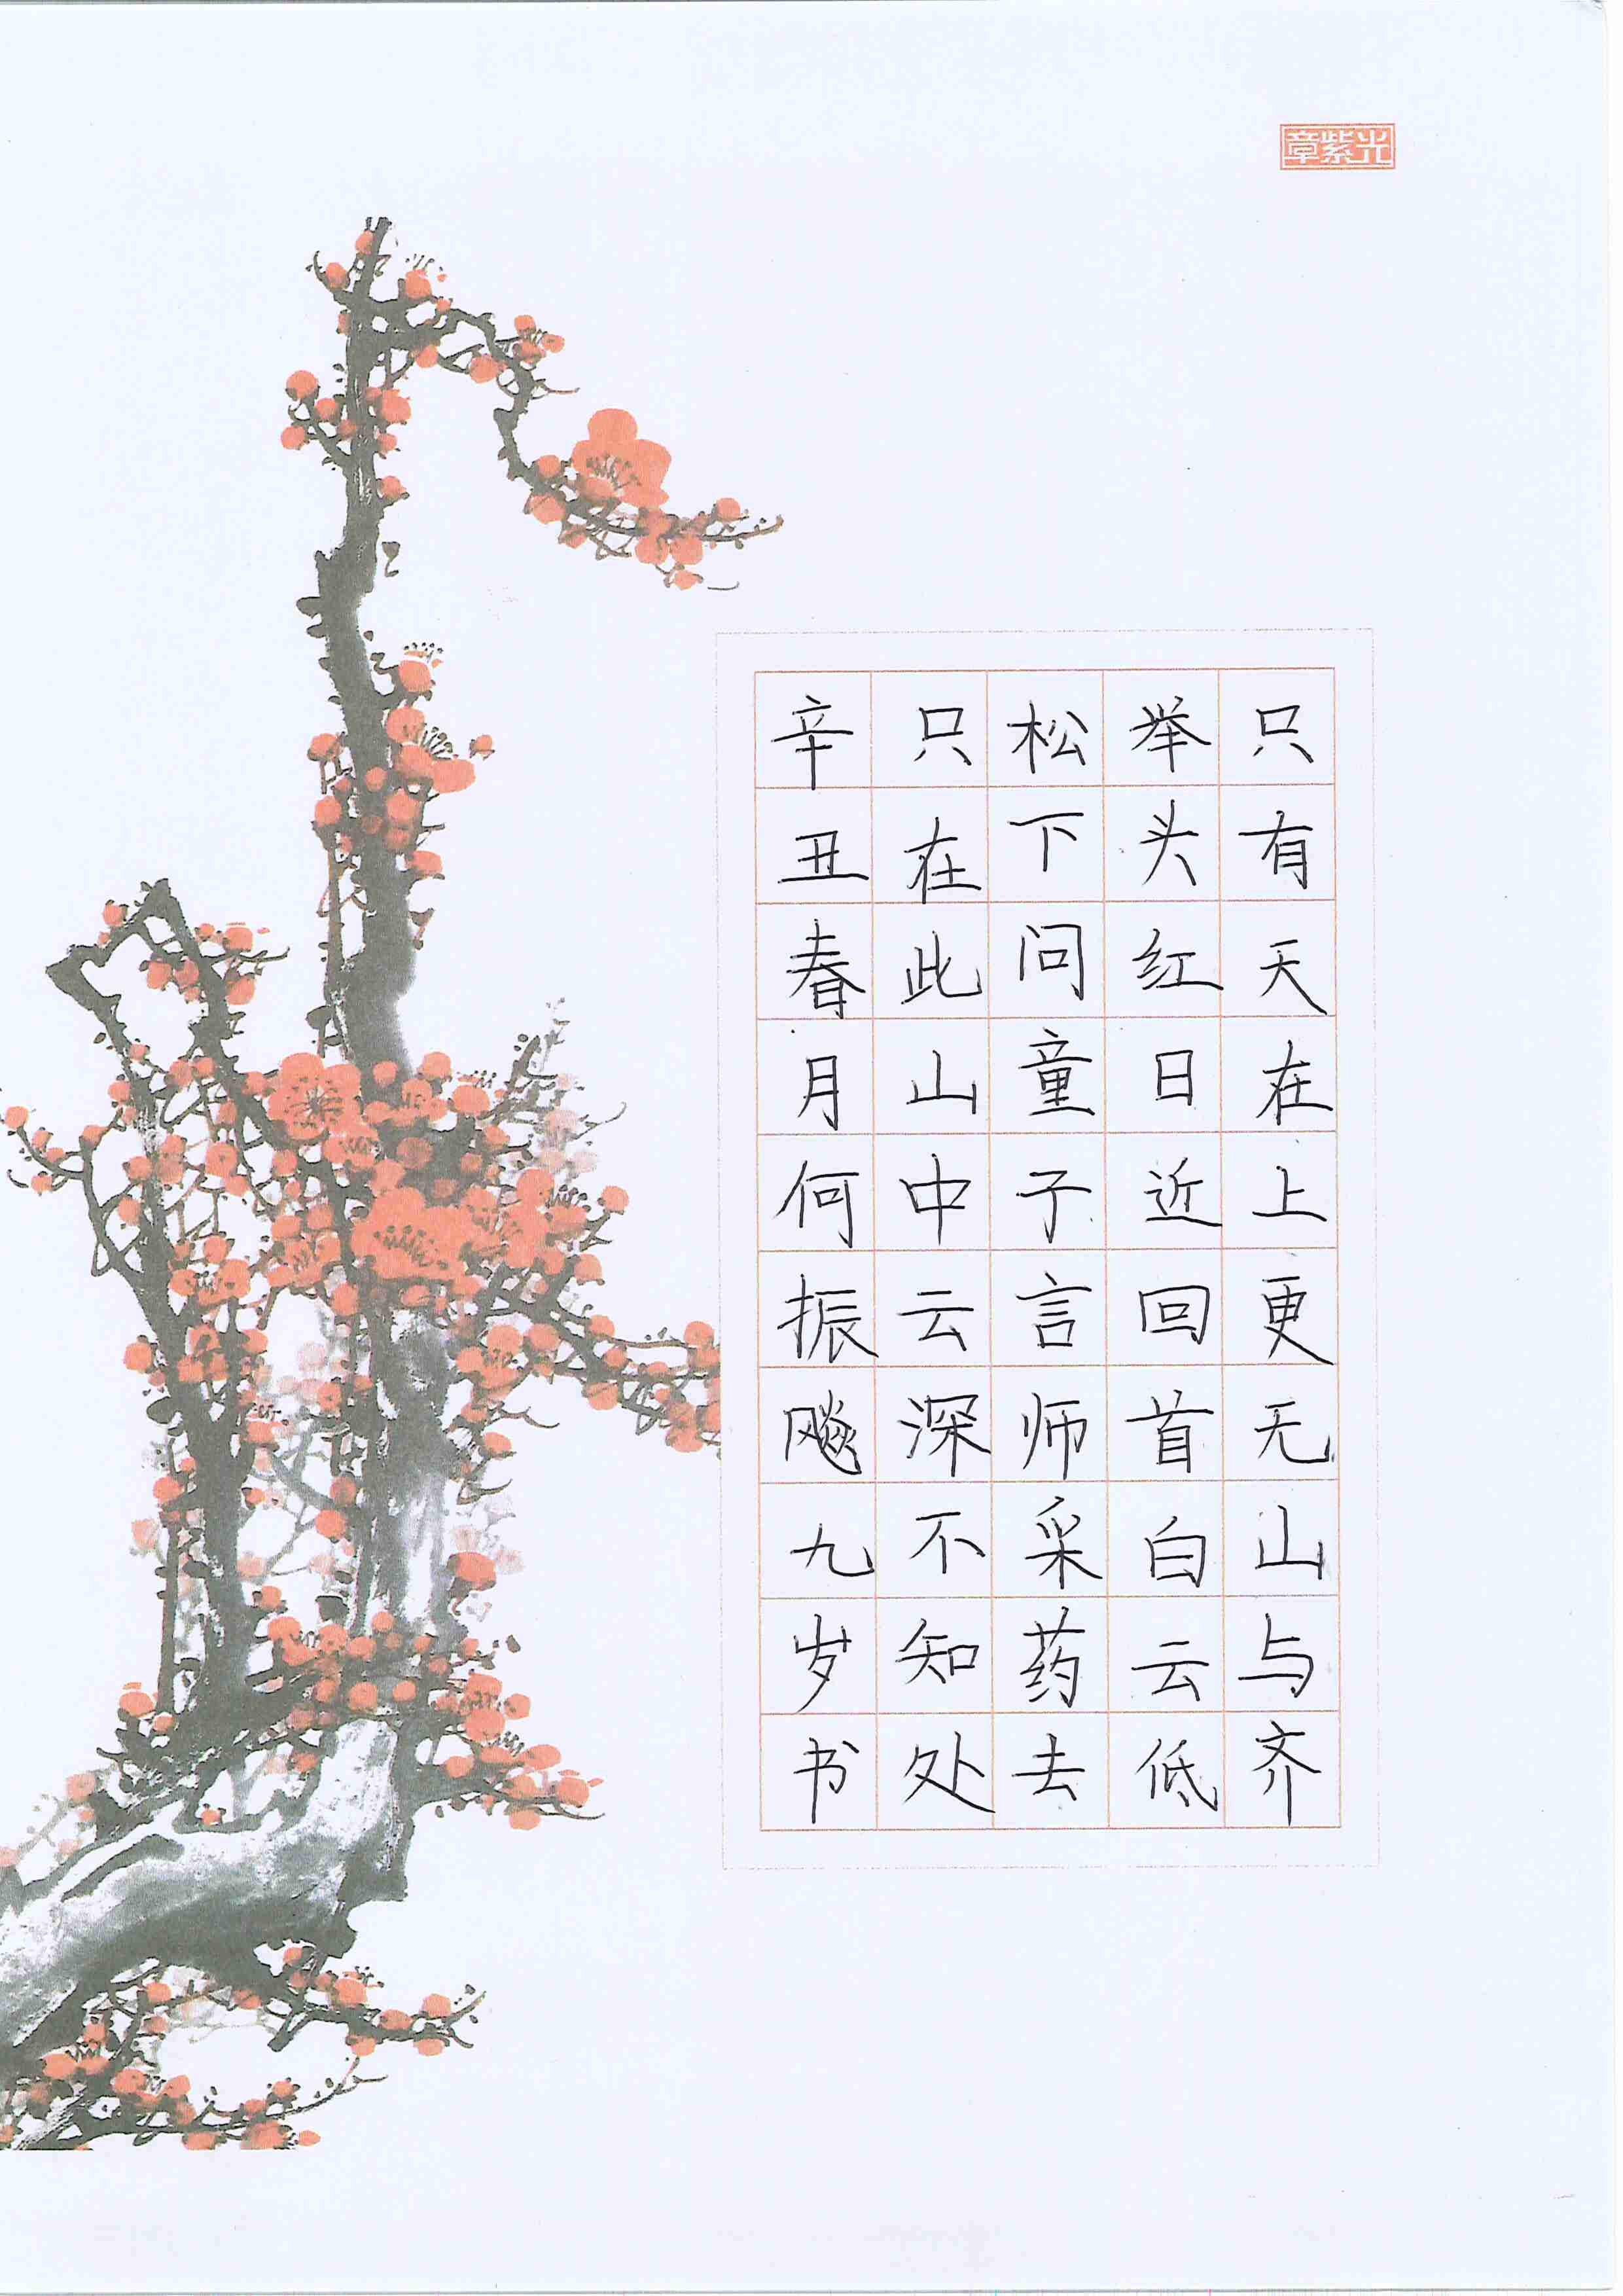 章紫光
只有天在上更无山与齐
举头红日近回首白云低
松下问童子言师采药去
只在此山中云深不知处
辛丑春月何振飚九岁书